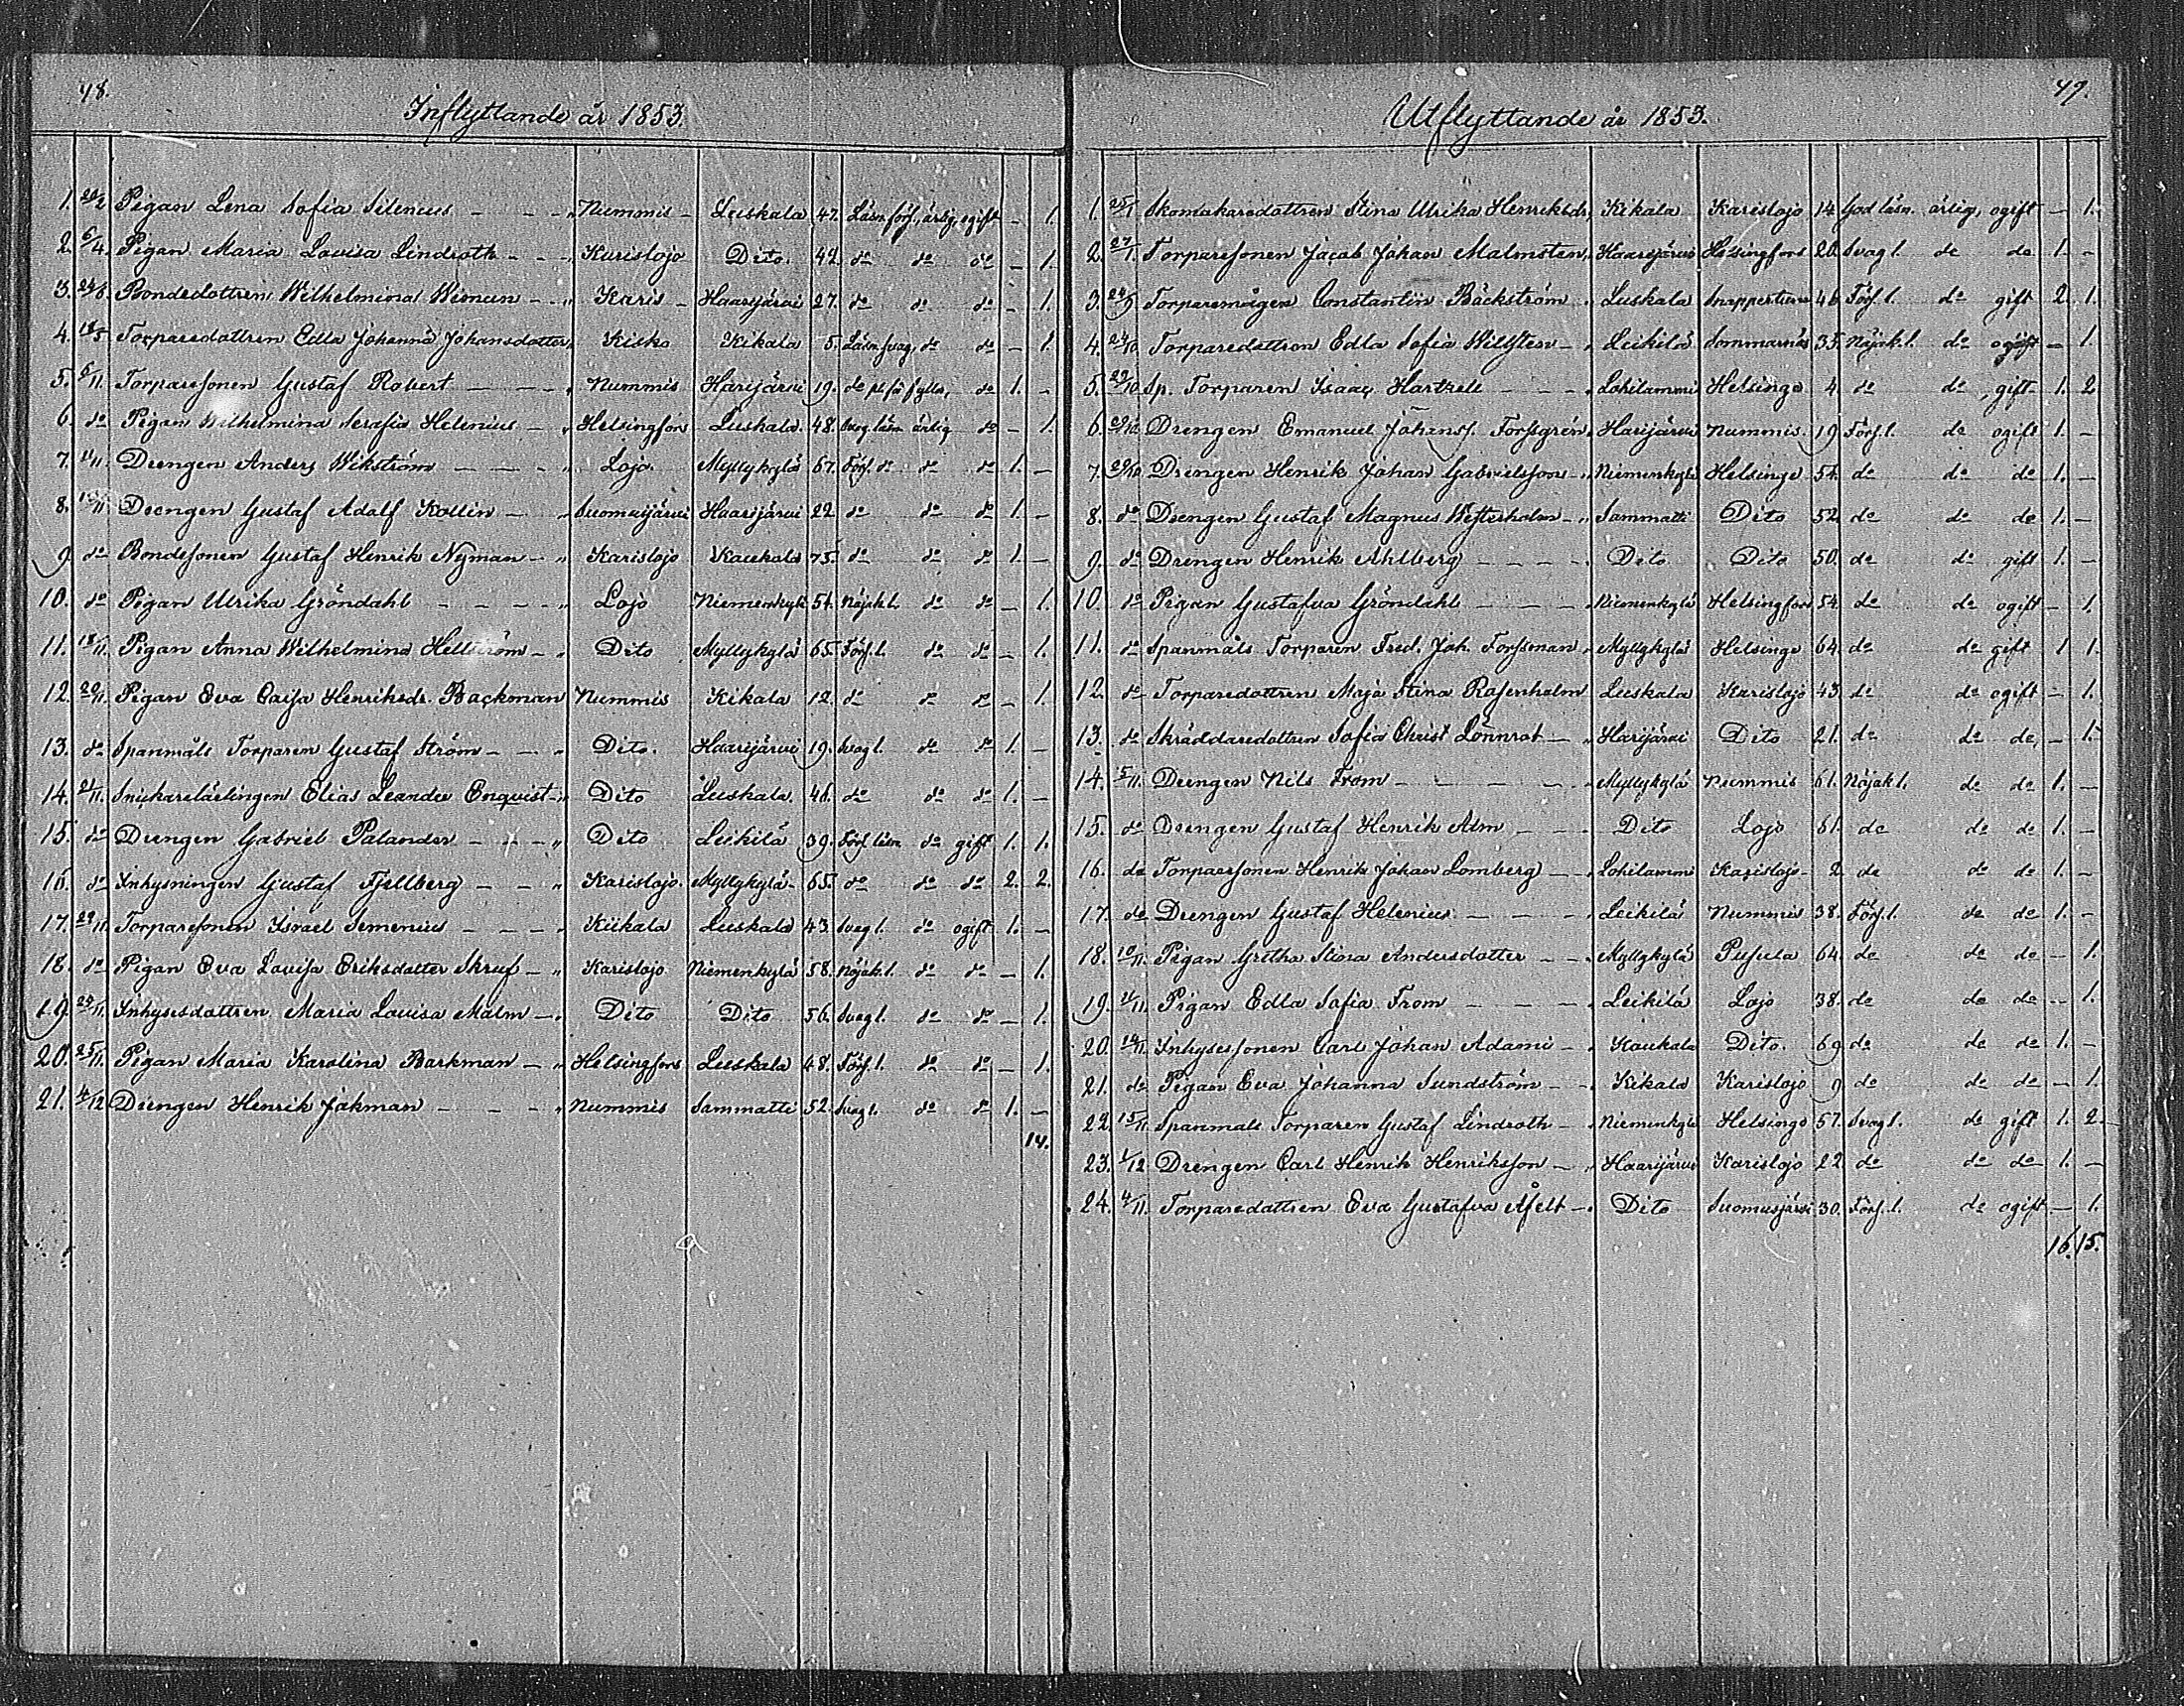 48.
Inflyttande år 1853.
1. 20/2 Pigan Lena Sofia Silenius - - - " Nummis - Leiskala 47. Läsn. förs., ärlig, ogift - 1.
2. 6/4. Pigan Maria Lovisa Lindroth - - - " Karislojo Dito. 42. do do do - 1.
3. Bondedottren Wilhelmina - - " Karis - Haarijärvi 27. do do do - 1.
4. 18/5 Torparedottren Edla Johanna Johansdotter, Kisko Kikala 5. Läsn. svag, do do - 1.
5. 6/11. Torparesonen Gustaf Robert - - - " Nummis Harijärvi 19. do do 1. -
6. do Pigan Wilhelmina Serafia Helenius - " Helsingfors Leiskala. 48. Svag läsn. ärlig do - 1.
7. Drengen Anders Wikström - - - " Lojo Myllykylä 67. Förs. do do do 1. -
8. Drengen Gustaf Adolf Kollin - - " Suomusjärvi Haarijärvi 22 do do do 1. -
9. do Bondesonen Gustaf Henrik Nyman - " Karislojo Kaukola 75. do do do 1. -
10. do Pigan Ulrika Gröndahl - - - - " Lojo Niemenkylä 54. Nöjakl. do do - 1.
11. 18/11. Pigan Anna Wilhelmina Hellström - " Dito Myllykylä 65. Förs. l. do do - 1.
12. 20/11. Pigan Eva Caisa Henriksdr. Backman Nummis Kikala 12. do do do - 1.
13. do Spanmåls Torparen Gustaf Ström - - - " Dito. Haarijärvi 19. Svag l. do do 1. -
14. 21/11. Snickarelärlingen Elias Leander Enqvist - " Dito Leiskala. 46. do do do 1. -
15. do Drengen Gabriel Palander - - - " Dito Leikilä 39. Förs. läsn do gift 1. 1.
16. do Inhysningen Gustaf Fjellberg - - " Karislojo. Myllykylä - 65. do do do 2. 2.
17. 22/11. Torparesonen Israel Semenius - - - " Kiikala Leiskala 43. Svag l. do ogift 1. -
18. do Pigan Eva Lovisa Eriksdotter Skruf - " Karislojo Niemenkylä 58. Nöjak. l. do do - 1.
19. 24/11. Inhysesdottren Maria Lovisa Malm - . Dito Dito 56. Svag l. do do - 1.
20. 25/11. Pigan Maria Karolina Barkman - " Helsingfors Leiskala 48. Förs. l. do do - 1.
21. 4/12 Drengen Henrik Jakman - - - " Nummis Sammatti 52. Svag l. do do 1. -
14.
49.
Utflyttande år 1853.
1. 25/1 Skomakaredottren Stina Ulrika Henriksdr. Kikala Karislojo 14 God läsn. ärlig, ogift - 1.
2. 27/1. Torparesonen Jacob Johan Malmsten, Haarijärvi Helsingfors 20. Svag l. do do 1. -
3. 24/9 Torparemågen Constantin Bäckström . Leiskala Snappertuna 46. Förs. l. do gift 2. 1.
4. 24/10 Torparedottren Edla Sofia - Leikilä Sommarnäs 35. Nöjak. l. do ogift - 1.
5. 29/10 Sp. Torparen Isaac Hartzell - - - . Lohilammi Helsinge 4. do do, gift - 1. 2
6. 29/10 Drengen Emanuel Johanss. Forssgrén . Harijärvi Nummis 19 Förs. l. do ogift 1. -
7. 29/10 Drengen Henrik Johan Gabrielsson . Niemenkylä Helsinge 54. do do do 1. -
8. do Drengen Gustaf Magnus Westerholm - " Sammatti Dito 52. do do do 1. -
9. do Drengen Henrik Ahlberg - - - - . Dito Dito 50. do do gift 1. -
10. do Pigan Gustafva Gröndahl - - - . Niemenkylä Helsingfors 54. do do ogift - 1.
11. do Spanmåls Torparen Fred. Joh. Forssman . Myllykylä Helsinge 64. do do gift 1 1.
12. do Torparedottren Maja Stina Rosenholm Leiskala Karislojo 43. do do ogift - 1.
13. do Skräddaredottren Sofia Christ Lönnrot - . Harijärvi Dito 21. do do do, - 1.
14. 5/11. Drengen Nils From - - - - . Myllykylä Nummis 61. Nöjak l. do do 1. -
15. do Drengen Gustaf Henrik Alm - - . Dito Lojo 61. do do do 1. -
16. do Torparesonen Henrik Johan Lomberg - . Lohilammi Karislojo - 2. do do do 1. -
17. do Drengen Gustaf Helenius - - - . Leikilä Nummis 38. Förs. l. do do 1. -
18. 10/11. Pigan Gretha Stina Andersdotter - - . Myllykylä Pusula 64. do do do - 1.
19. Pigan Edla Sofia From - - - . Leikilä Lojo 38. do do do - 1.
20. Inhysessonen Carl Johan Adami - . Kaukola Dito. 69 do do do 1. -
21. do Pigan Eva Johanna Sundström - - . Kikala Karislojo 9 do do do - 1.
22. 15/11. Spanmåls Torparen Gustaf Lindroth - . Niemenkylä Helsinge 57. Svag l. do gift 1. 2.
23. 1/12 Drengen Carl Henrik Henriksson - " Haarijärvi Karislojo 22. do do do 1. -
24. 4/11. Torparedottren Eva Gustafva - . Dito Suomusjärvi 30. Förs. l. do ogift - 1.
16. 15.